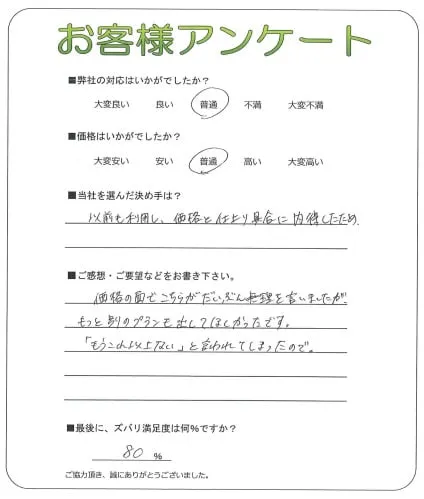 お客様アンケート
■弊社の対応はいかがでしたか?
大変良い 良い 普通 不満 大変不満
■価格はいかがでしたか?
大変安い 安い 普通 高い 大変高い
■当社を選んだ決め手は?
以前も利用し、価格と仕上り具合に納得したため。
■ご感想・ご要望などをお書き下さい。
価格の面でこちらがだいぶん無理を言いましたが
もっと別のプランも出してほしかったです。
「もうこれ以上ない」と言われてしまったので。
■最後に、ズバリ満足度は何%ですか?
80 %
ご協力頂き、誠にありがとうございました。